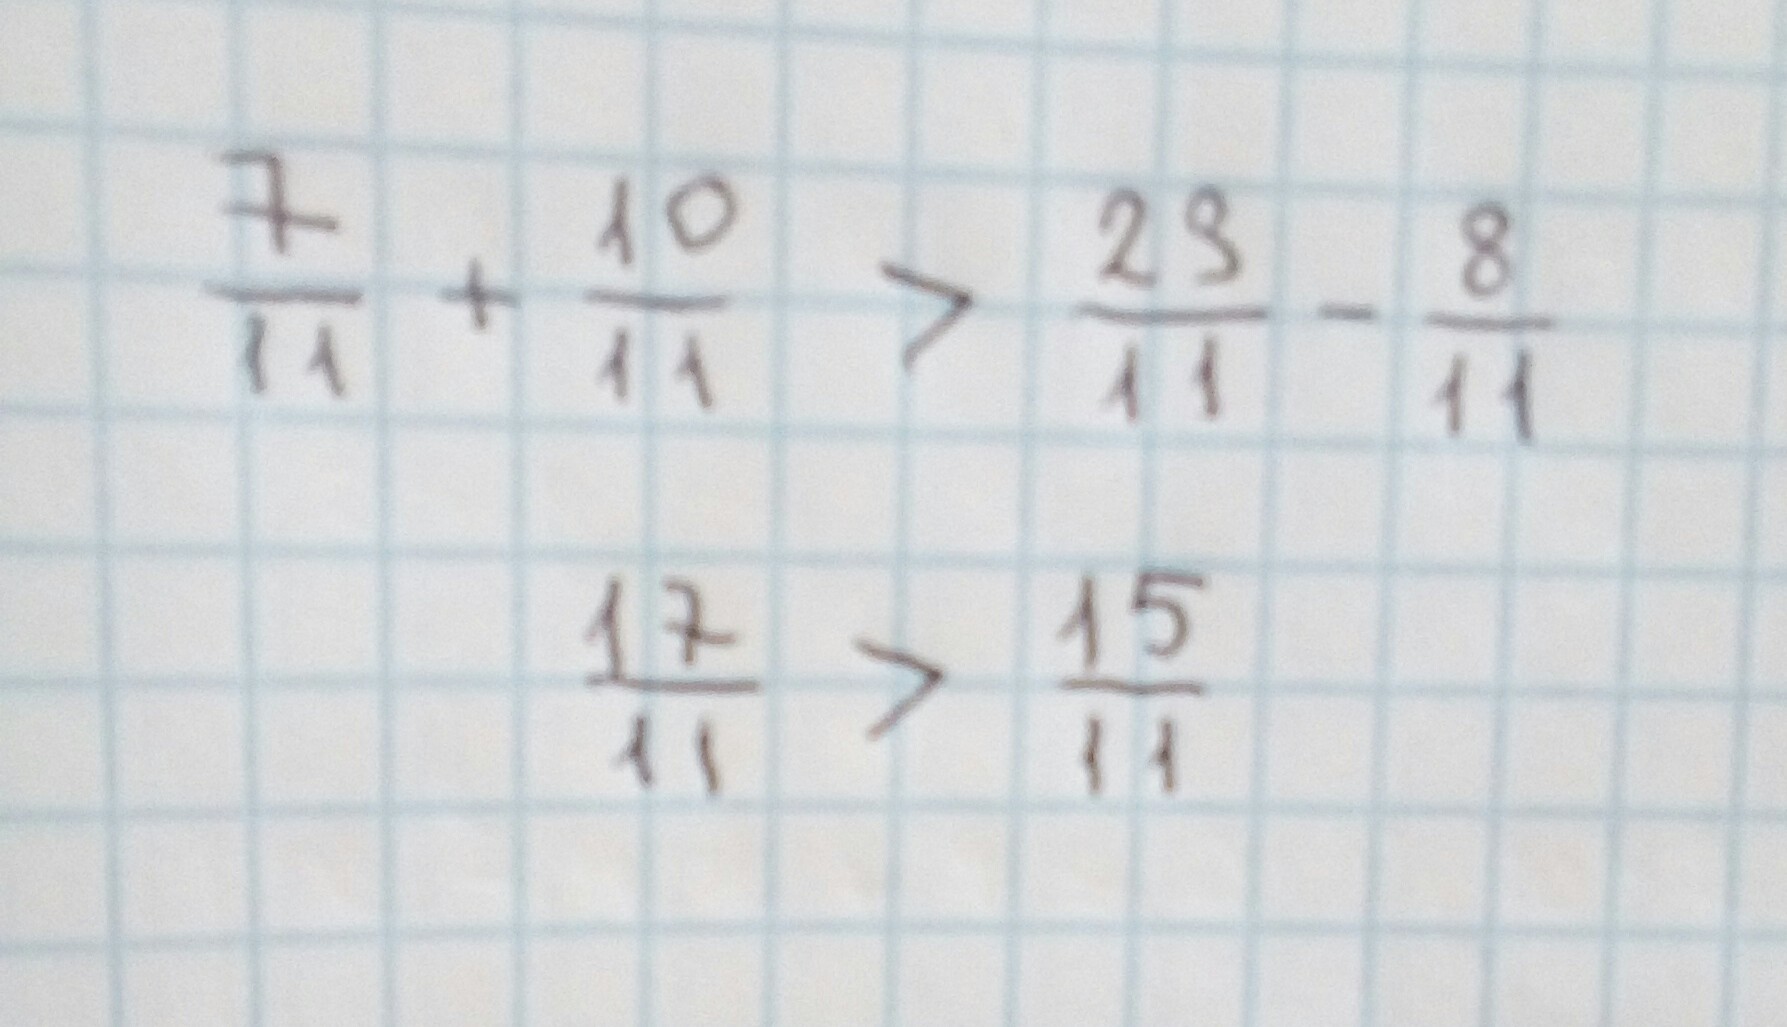 7/11 + 10/11 > 23/11 - 8/11
17/11 > 15/11